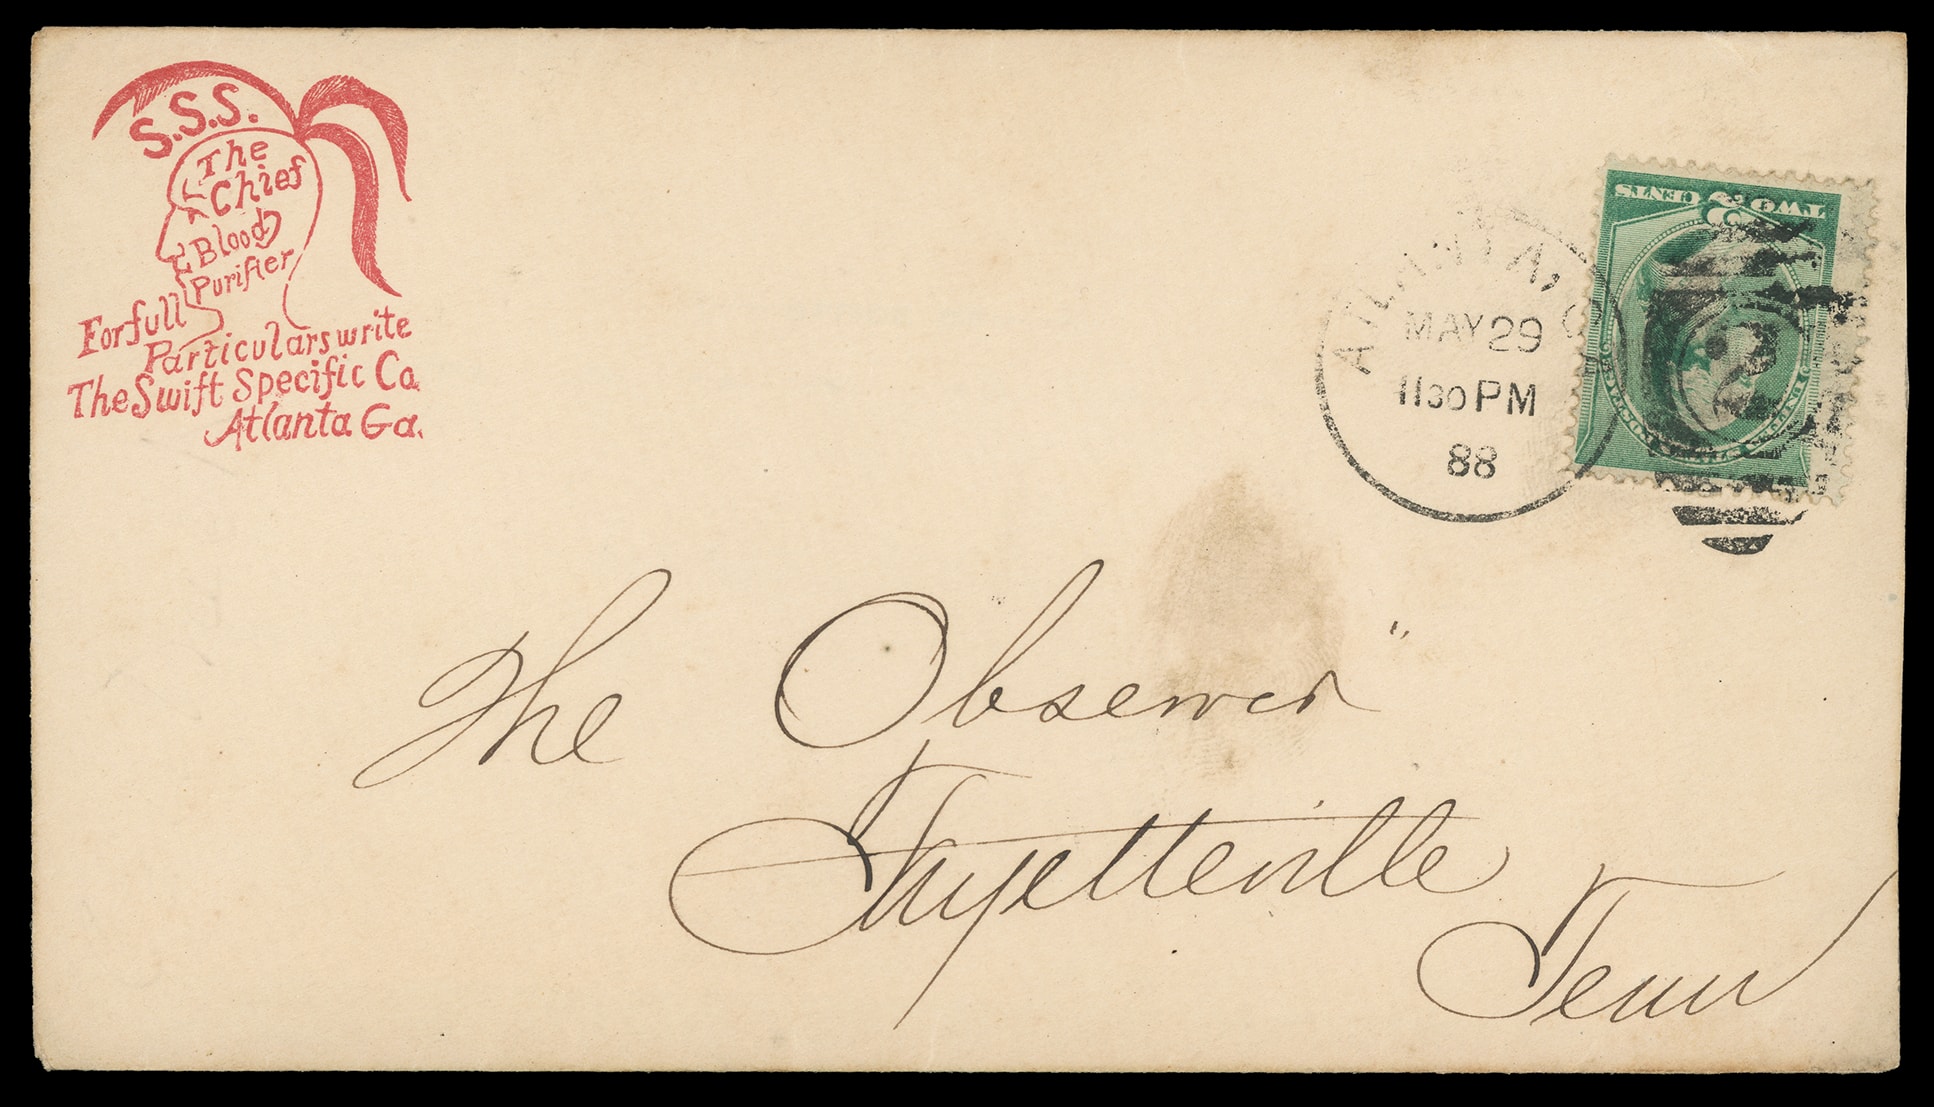 S.S.S.
The
Chief
Blood
Purifier
For full
Particulars write
The Swift Specific Co.
Atlanta Ga.
ATLANTA, G
MAY 29
1130 PM
88
TWO 2 CENTS
2
The Observer"
Fayetteville
Tenn